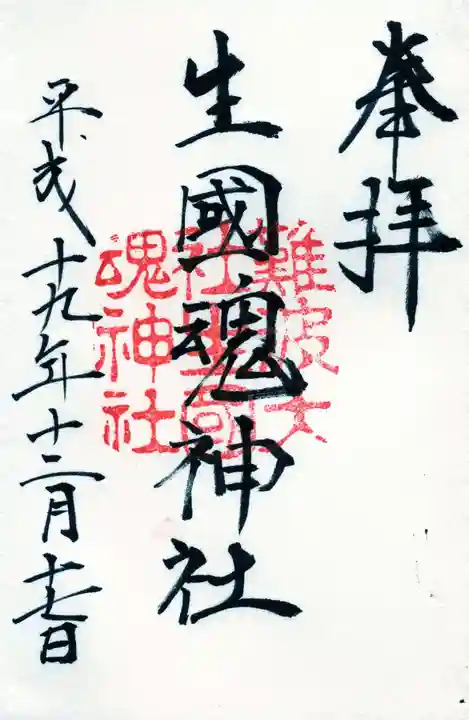 奉拝
生國魂神社
難波大
社生國
魂神社
平成十九年十二月十七日